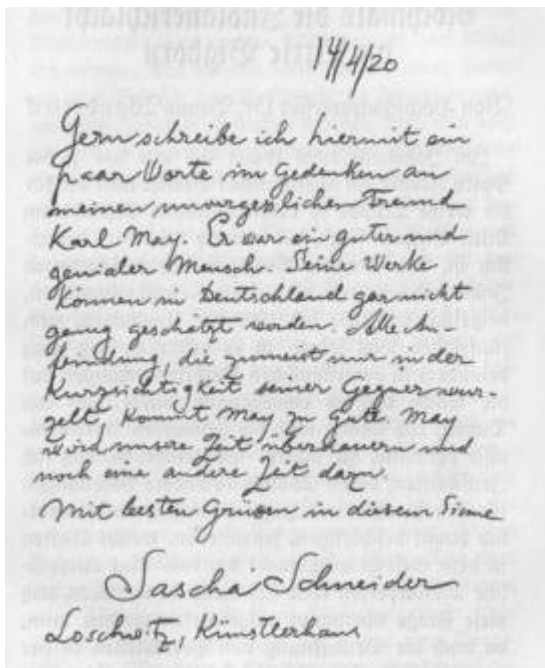 14/4/20
Gern schreibe ich hiermit ein
paar Worte im Gedenken an
meinen unvergesslichen Freund
Karl May. Er war ein guter und
genialer Mensch. Seine Werke
können in Deutschland gar nicht
genug geschätzt werden. Alle An-
feindung, die zumeist nur in der
Kurzsichtigkeit seiner Gegner wur-
zelt, kommt May zu gute. May
wird unsere Zeit überdauern und
noch eine andere Zeit dazu.
Mit besten Grüssen in diesem Sinne
Sascha Schneider
Loschwitz, Künstlerhaus